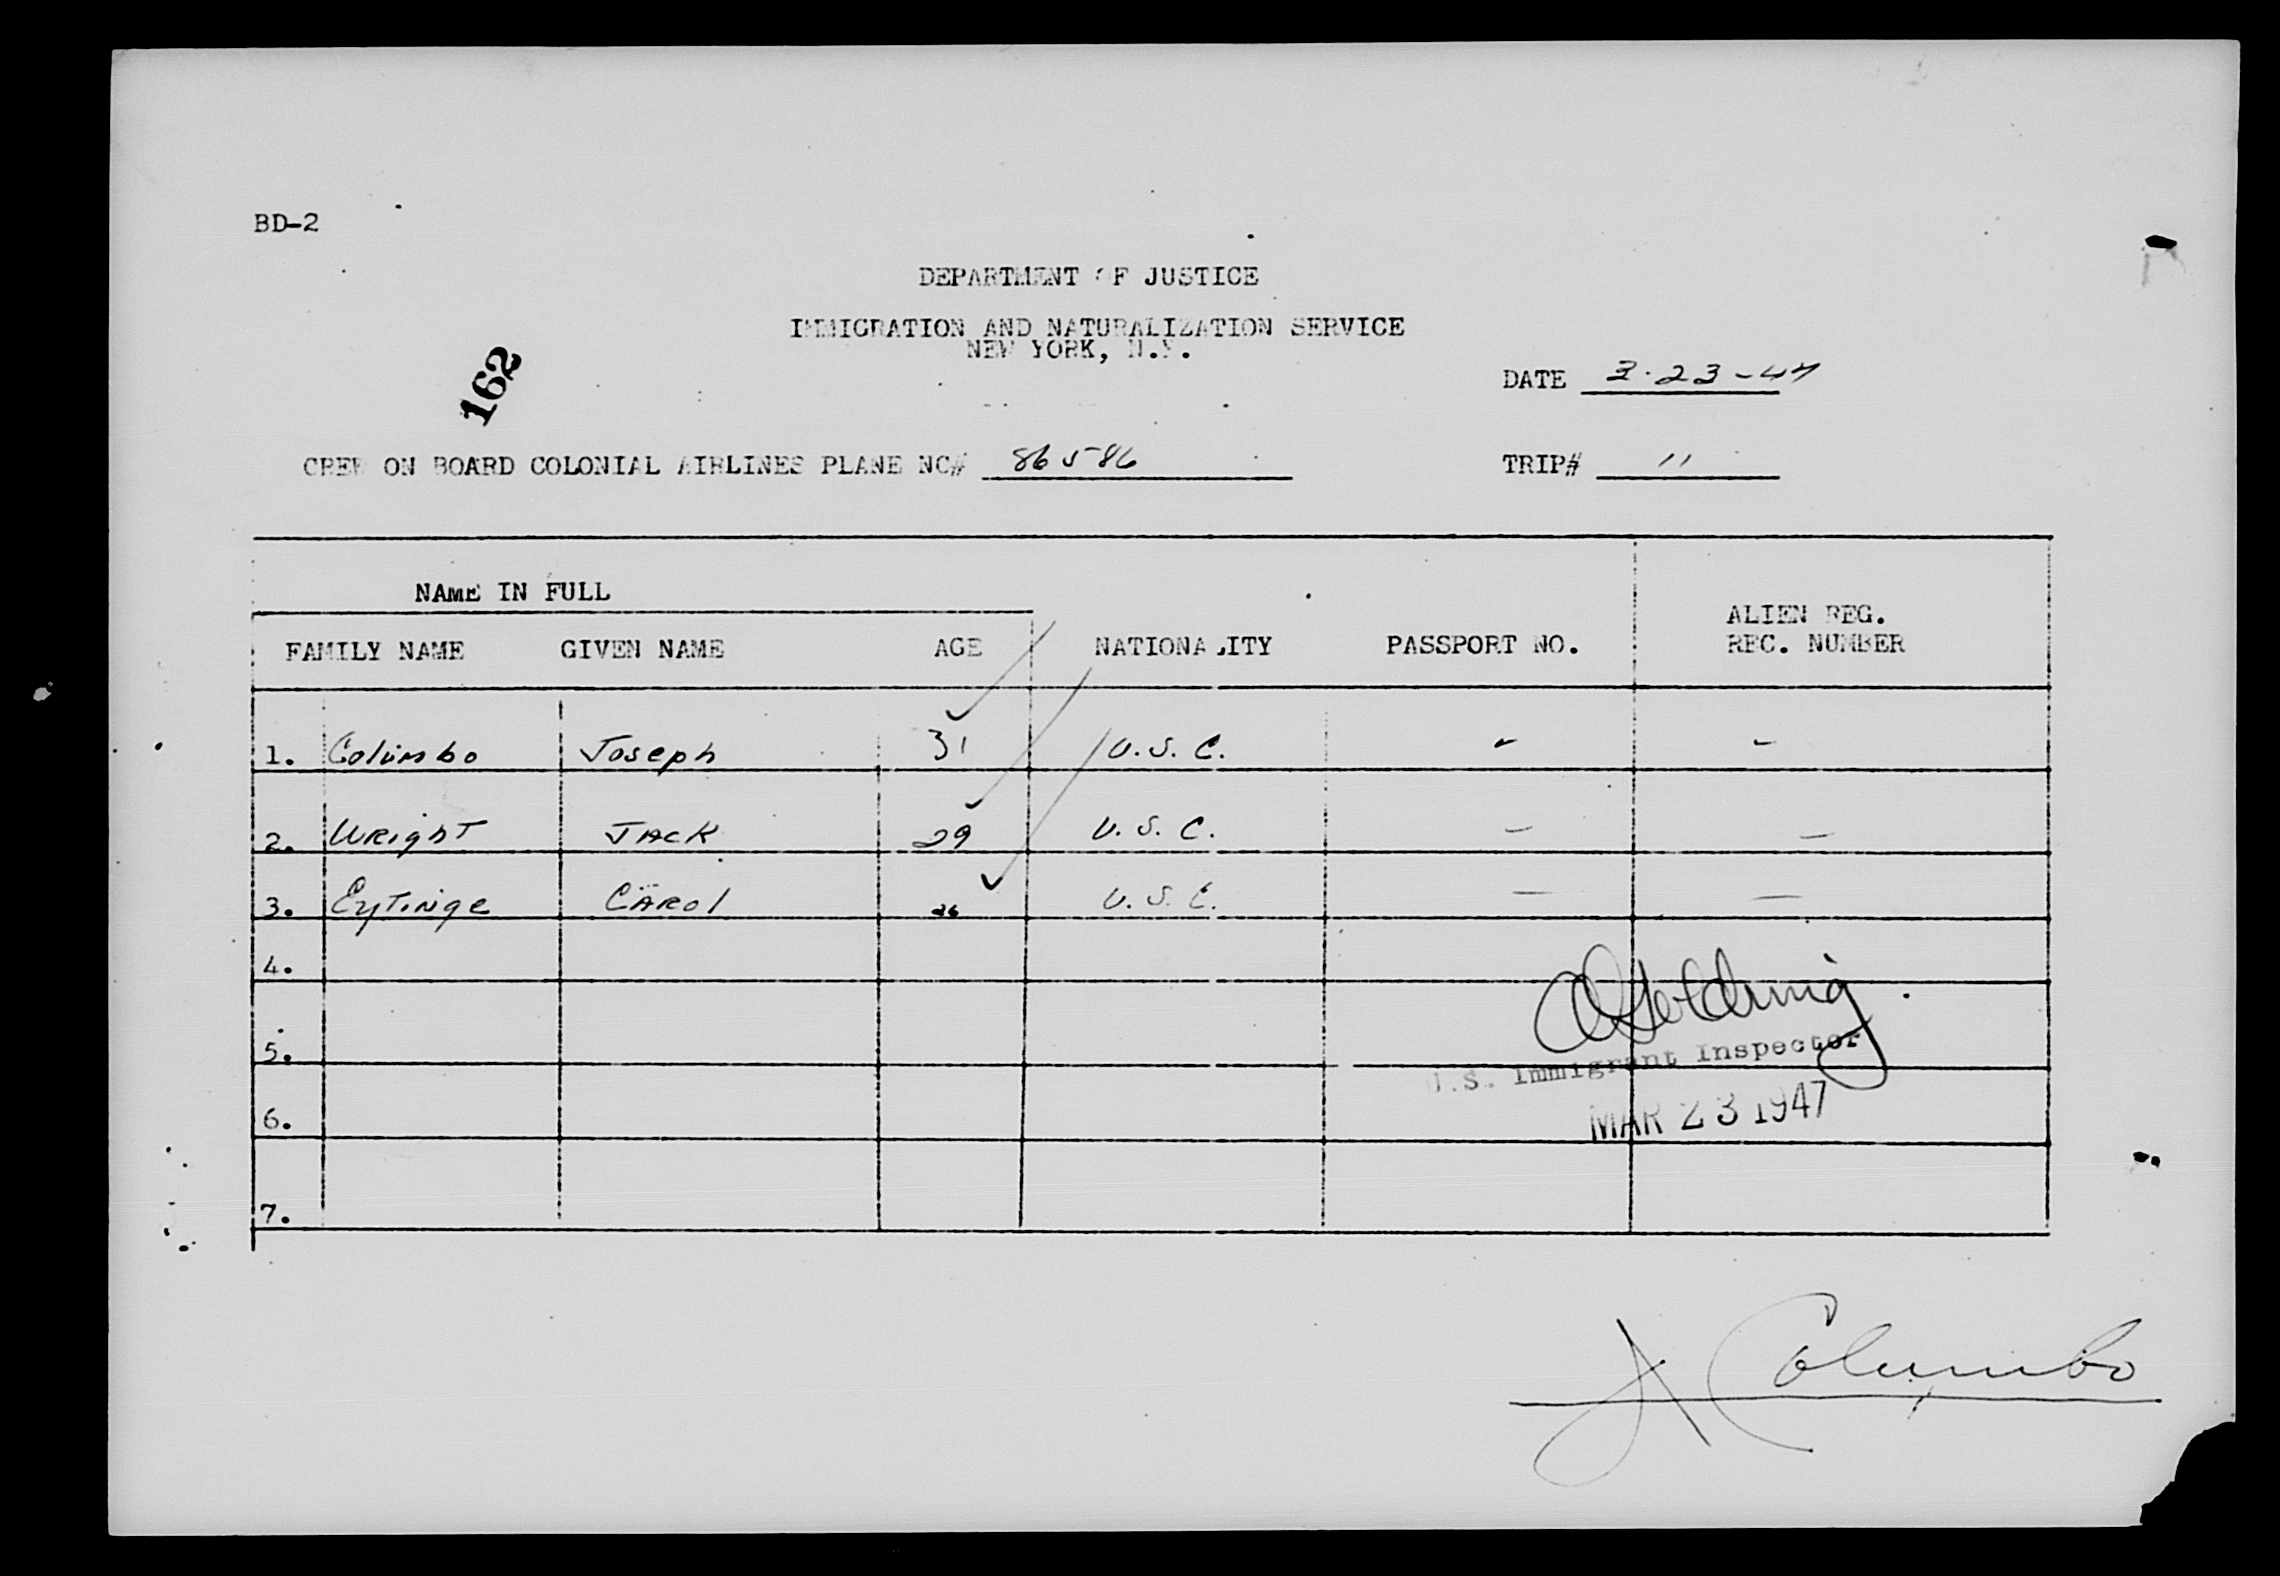 BD-2
DEPARTMENT OF JUSTICE
IMMIGRATION AND NATURALIZATION SERVICE
NEW YORK, N.Y.
162
DATE 3-23-47
CREW ON BOARD COLONIAL AIRLINES PLANE NC# 86586
TRIP# 11
NAME IN FULL
FAMILY NAME GIVEN NAME AGE NATIONALITY PASSPORT NO. ALIEN REG. REC. NUMBER
1. Columbo Joseph 31 U.S.C. - -
2. Wright Jack 29 U.S.C. - -
3. Eytinge Carol 26 U.S.C. - -
4.
5.
U.S. Immigrant Inspector
6.
MAR 23 1947
7.
J Columbo